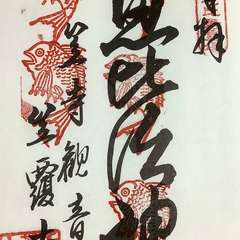 拝
恵比須神
笠寺観音
笠覆寺